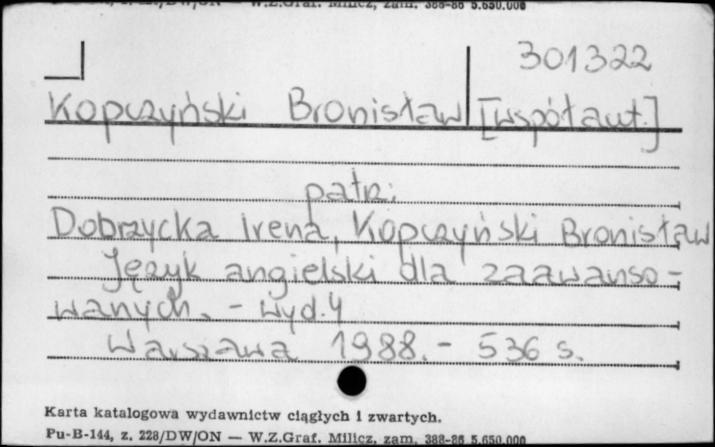 W.Z.Graf. Milicz, zam. 388-86 5.650.000
301322
Kopczyński Bronisław [współaut.]
patrz:
Dobrzycka Irena, Kopczyński Bronisław
Język angielski dla zaawanso-
wanych. - wyd. 4
Warszawa 1988. - 536 s.
Karta katalogowa wydawnictw ciągłych i zwartych.
Pu-B-144, z. 228/DW/ON — W.Z.Graf. Milicz, zam. 388-86 5.650.000